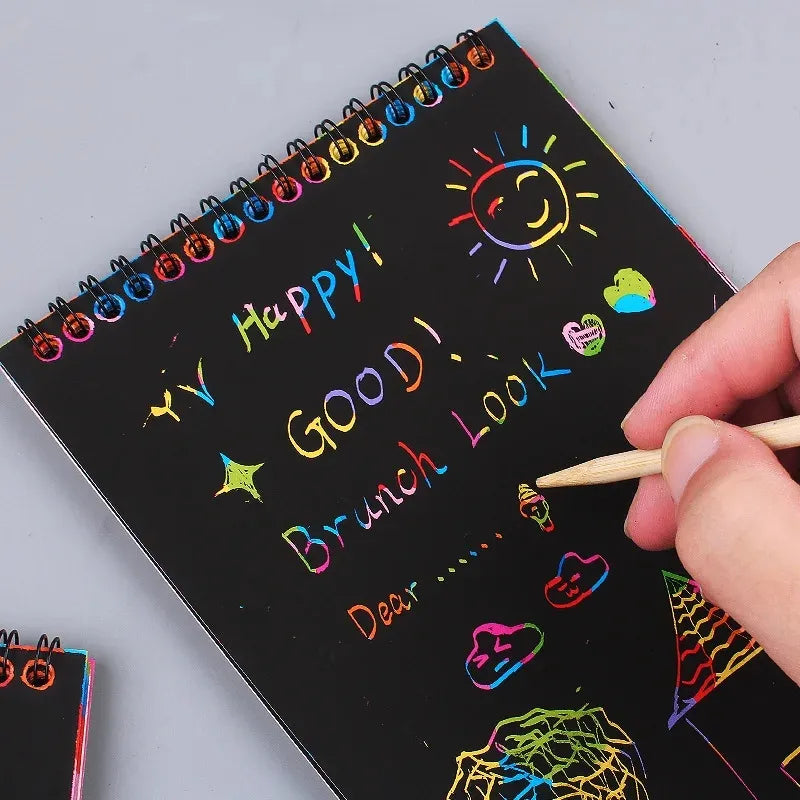 Happy!
GOOD!
Brunch Look
Dear.......